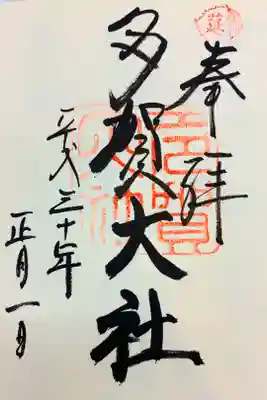 奉拝
多賀大社
平成三十年
正月一日